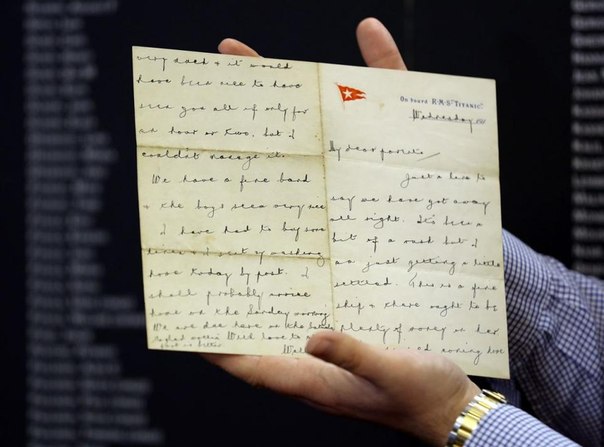 On board R.M.S. "TITANIC".
Wednesday 191
My dear parents,
Just a line to
say we have got away
all right. It's been a
bit of a rush but I
am just getting a little
settled. This is a fine
ship & there ought to be
plenty of money on her
missed coming home
very much & it would
have been nice to have
seen you all if only for
an hour or two, but I
couldn't manage it.
We have a fine band
& the boys seem very nice
I have had to buy some
linen & I sent my washing
home today by post. I
shall probably arrive
home on the Sunday morning
We are due here on the
Glad mother's With love to
foot is better